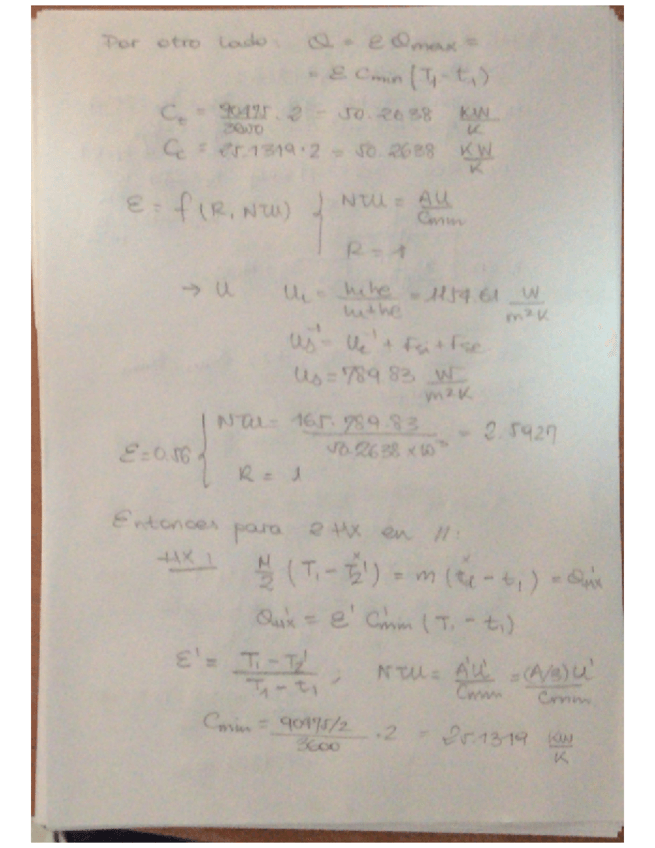 Por otro lado: Q = ε Qmax =
= ε Cmin (T1 - t1)
Ce = 90475/3600 · 2 = 50.2638 KW/K
Cc = 25.1319 · 2 = 50.2638 KW/K
ε = f (R, NTU) { NTU = AU/Cmin
R = 1
→ U Uc = hi he/hi+he = 1157.61 W/m²K
Us⁻¹ = Uc⁻¹ + rsi + rse
Us = 789.83 W/m²K
ε = 0.56 { NTU = 165 · 789.83/50.2638 × 10³ = 2.5927
R = 1
Entonces para 2 HX en //:
HX 1 M/2 (T1 - T2') = m (t2' - t1) = Q'
Q' = ε' C'min (T1 - t1)
ε' = T1 - T2'/T1 - t1 ; NTU = A'U'/Cmin = U'/Cmin
Cmin = 90475/2/3600 · 2 = 25.1319 KW/K